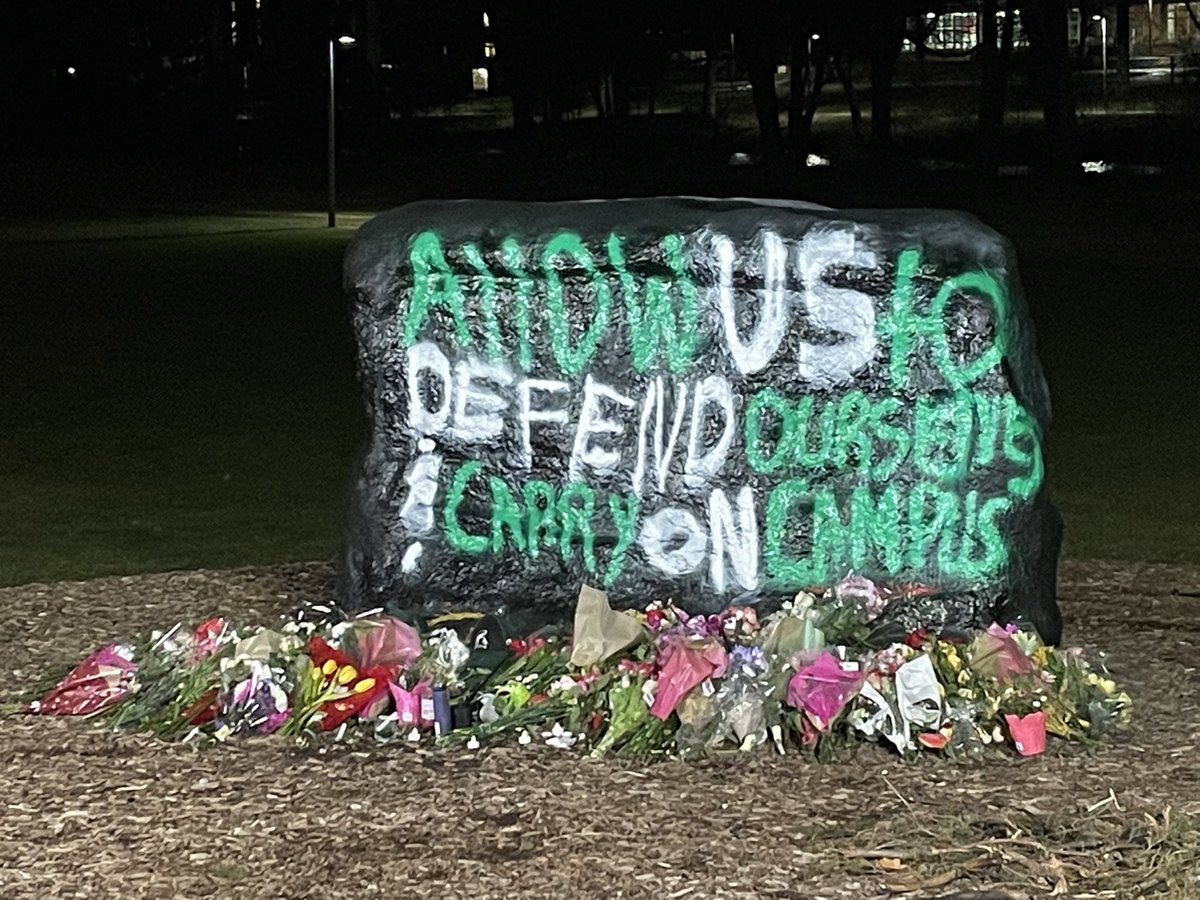 AllOW US to
DEFEND OURSELVES
& CARRY ON CAMPUS